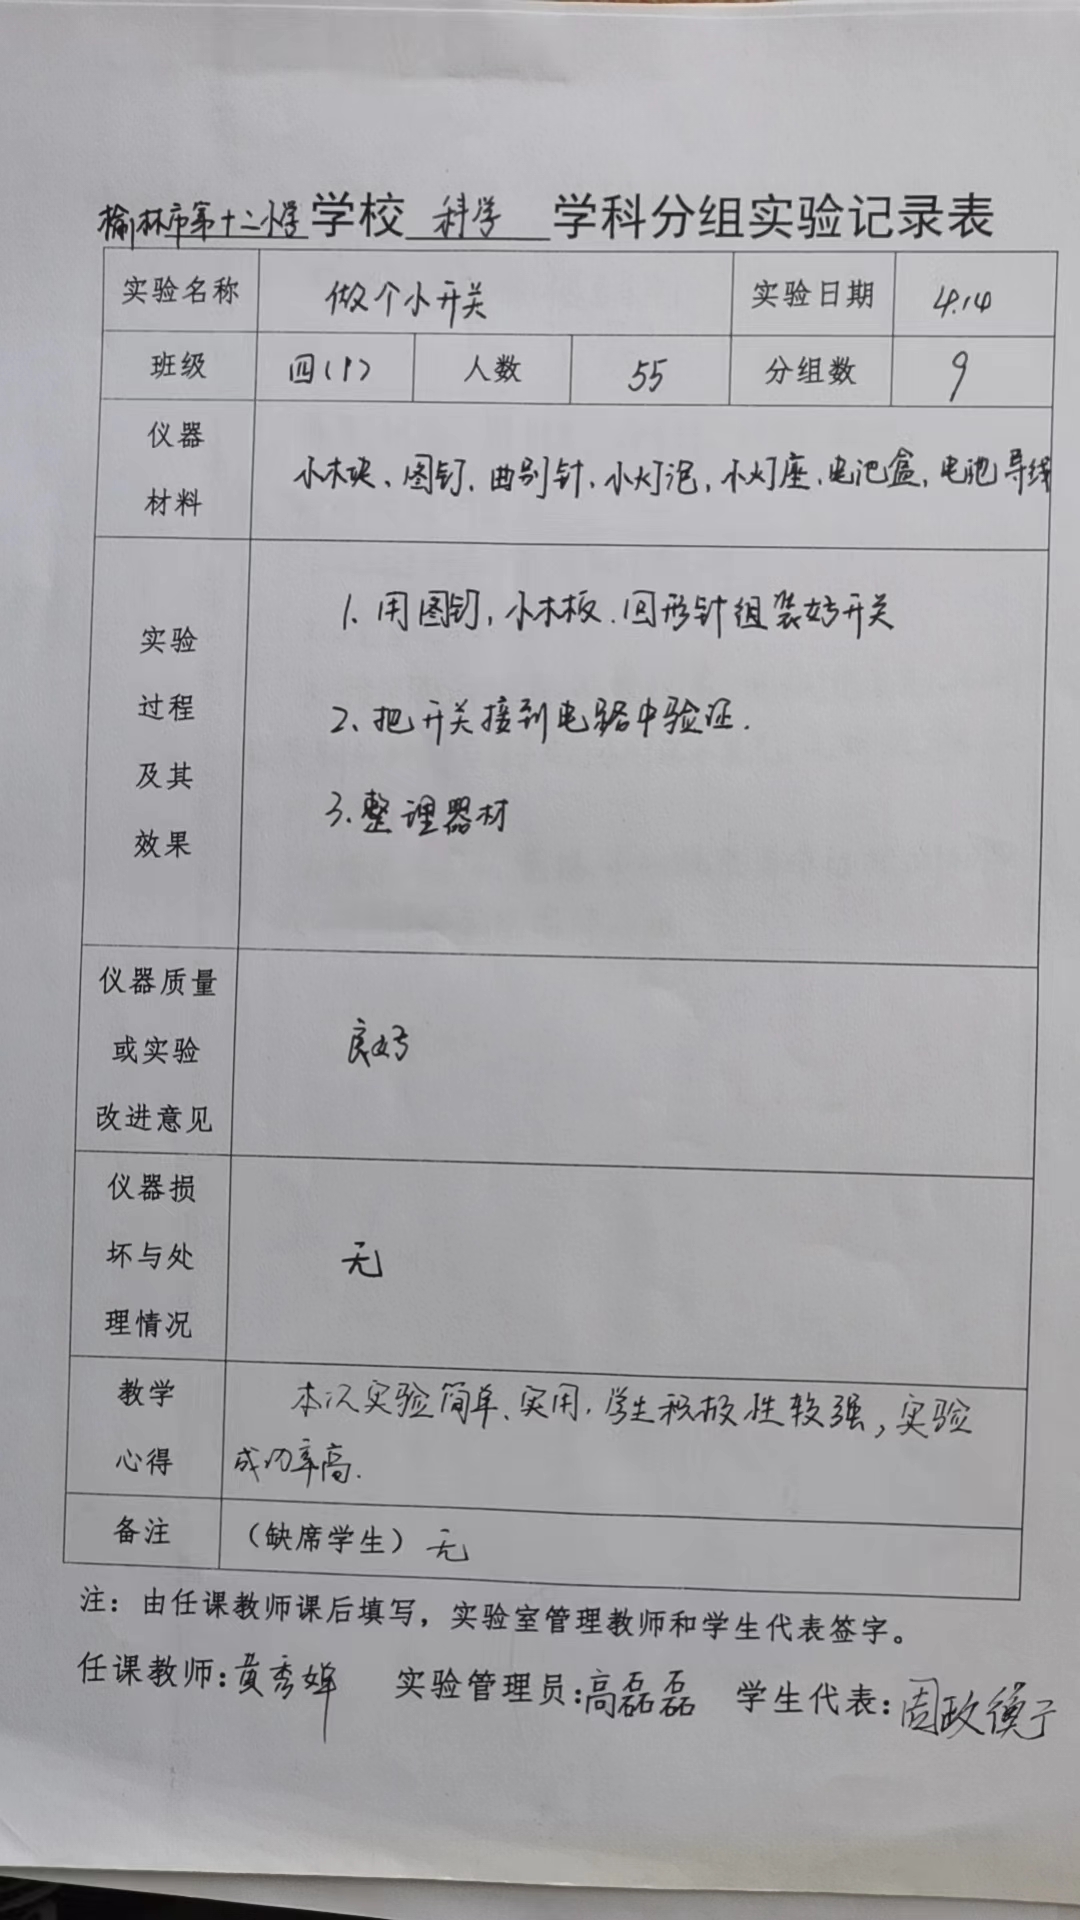 榆林市第十二小学学校 科学 学科分组实验记录表
实验名称 做个小开关 实验日期 4.14
班级 四(1) 人数 55 分组数 9
仪器
材料
小木块、图钉、曲别针、小灯泡、小灯座、电池盒、电池导线
实验
过程
及其
效果
1. 用图钉,小木板.回形针组装好开关
2、把开关接到电路中验证.
3.整理器材
仪器质量
或实验
改进意见
良好
仪器损
坏与处
理情况
无
教学
心得
本次实验简单、实用,学生积极性较强,实验
成功率高.
备注 (缺席学生) 无
注：由任课教师课后填写，实验室管理教师和学生代表签字。
任课教师:黄秀婵 实验管理员:高磊磊 学生代表:周政衡